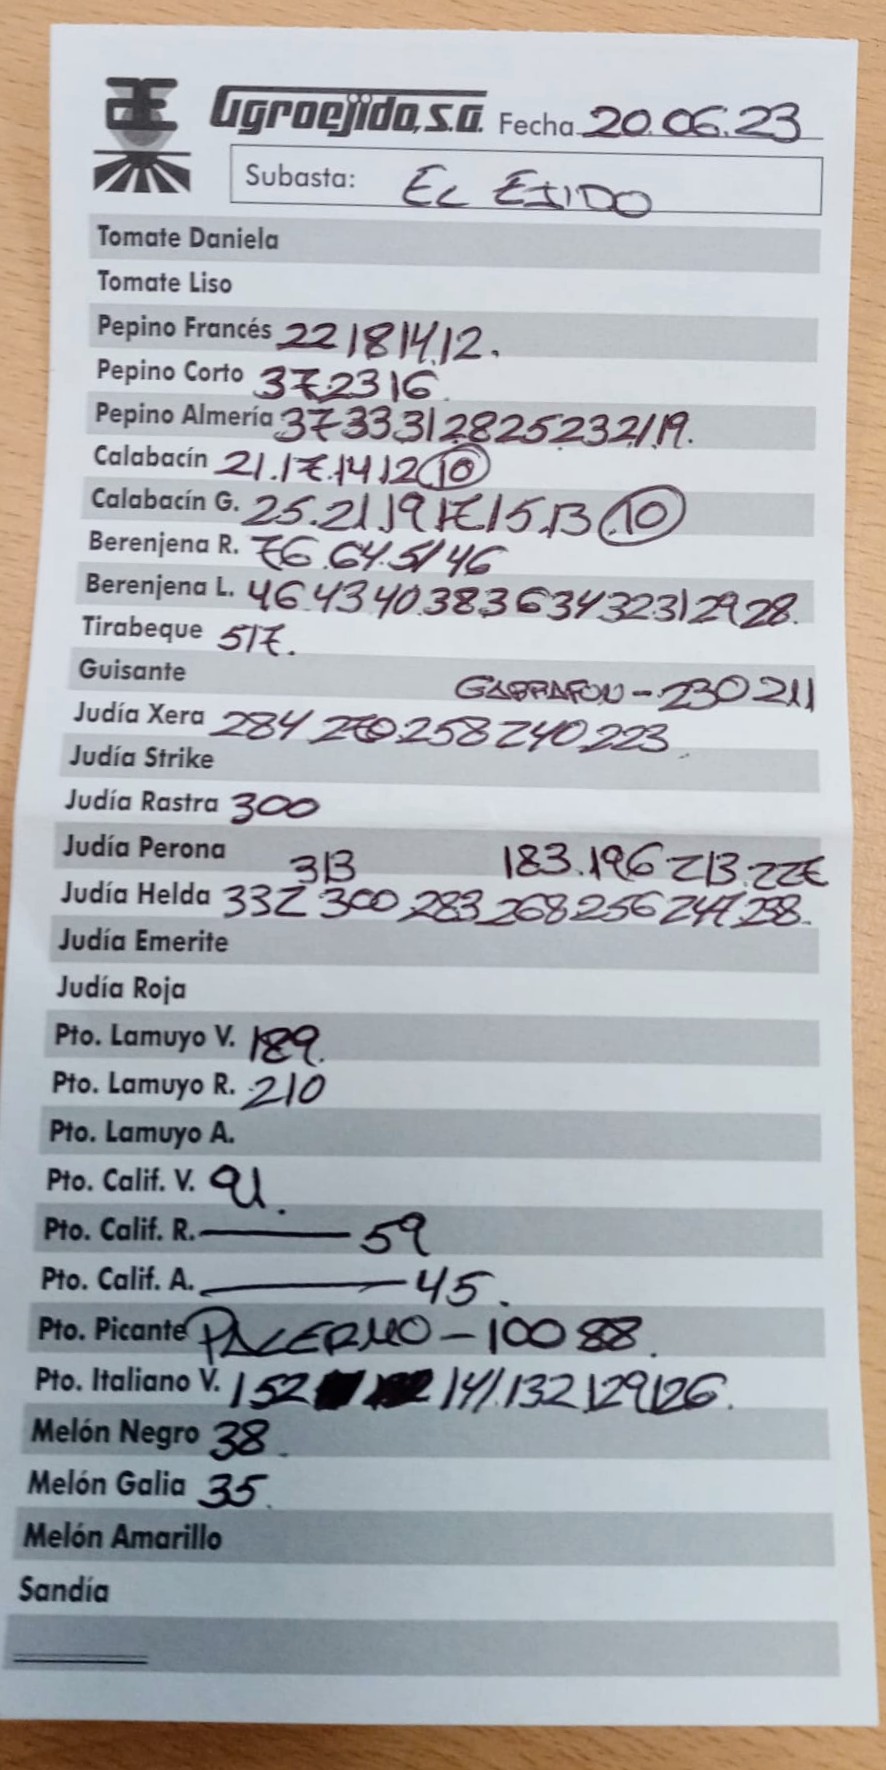 Agroejido, s.a. Fecha 20.06.23
Subasta: EL EJIDO
Tomate Daniela
Tomate Liso
Pepino Francés 22 18 14.12.
Pepino Corto 37.23 16.
Pepino Almería 37 33 31.28 25.23 21.19.
Calabacín 21.17.14 12 10
Calabacín G. 25.21 19 17 15.13 10
Berenjena R. 76.64.51 46
Berenjena L. 46.43 40.38 36 34 32 31 29 28.
Tirabeque 517.
Guisante
GARRAFON - 230 211
Judía Xera 284 270 258 240.223.
Judía Strike
Judía Rastra 300
Judía Perona 183.196 213.227
313
Judía Helda 332 300 283 268 256 247 238.
Judía Emerite
Judía Roja
Pto. Lamuyo V. 189.
Pto. Lamuyo R. 210
Pto. Lamuyo A.
Pto. Calif. V. 91.
Pto. Calif. R. — 59
Pto. Calif. A. — 45.
Pto. Picante PALERMO - 100 88.
Pto. Italiano V. 152 141.132 129 126.
Melón Negro 38.
Melón Galia 35.
Melón Amarillo
Sandía